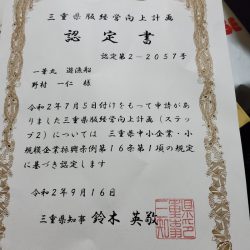 三重県版経営向上計画
認定書
認定第2－2057号
一葉丸 遊漁船
野村 一仁 様
令和2年7月5日付けをもって申請が
ありました三重県版経営向上計画（ステッ
プ2）については 三重県中小企業・小
規模企業振興条例第16条第1項の規定
に基づき認定します
令和2年9月16日
三重県知事 鈴木 英敬